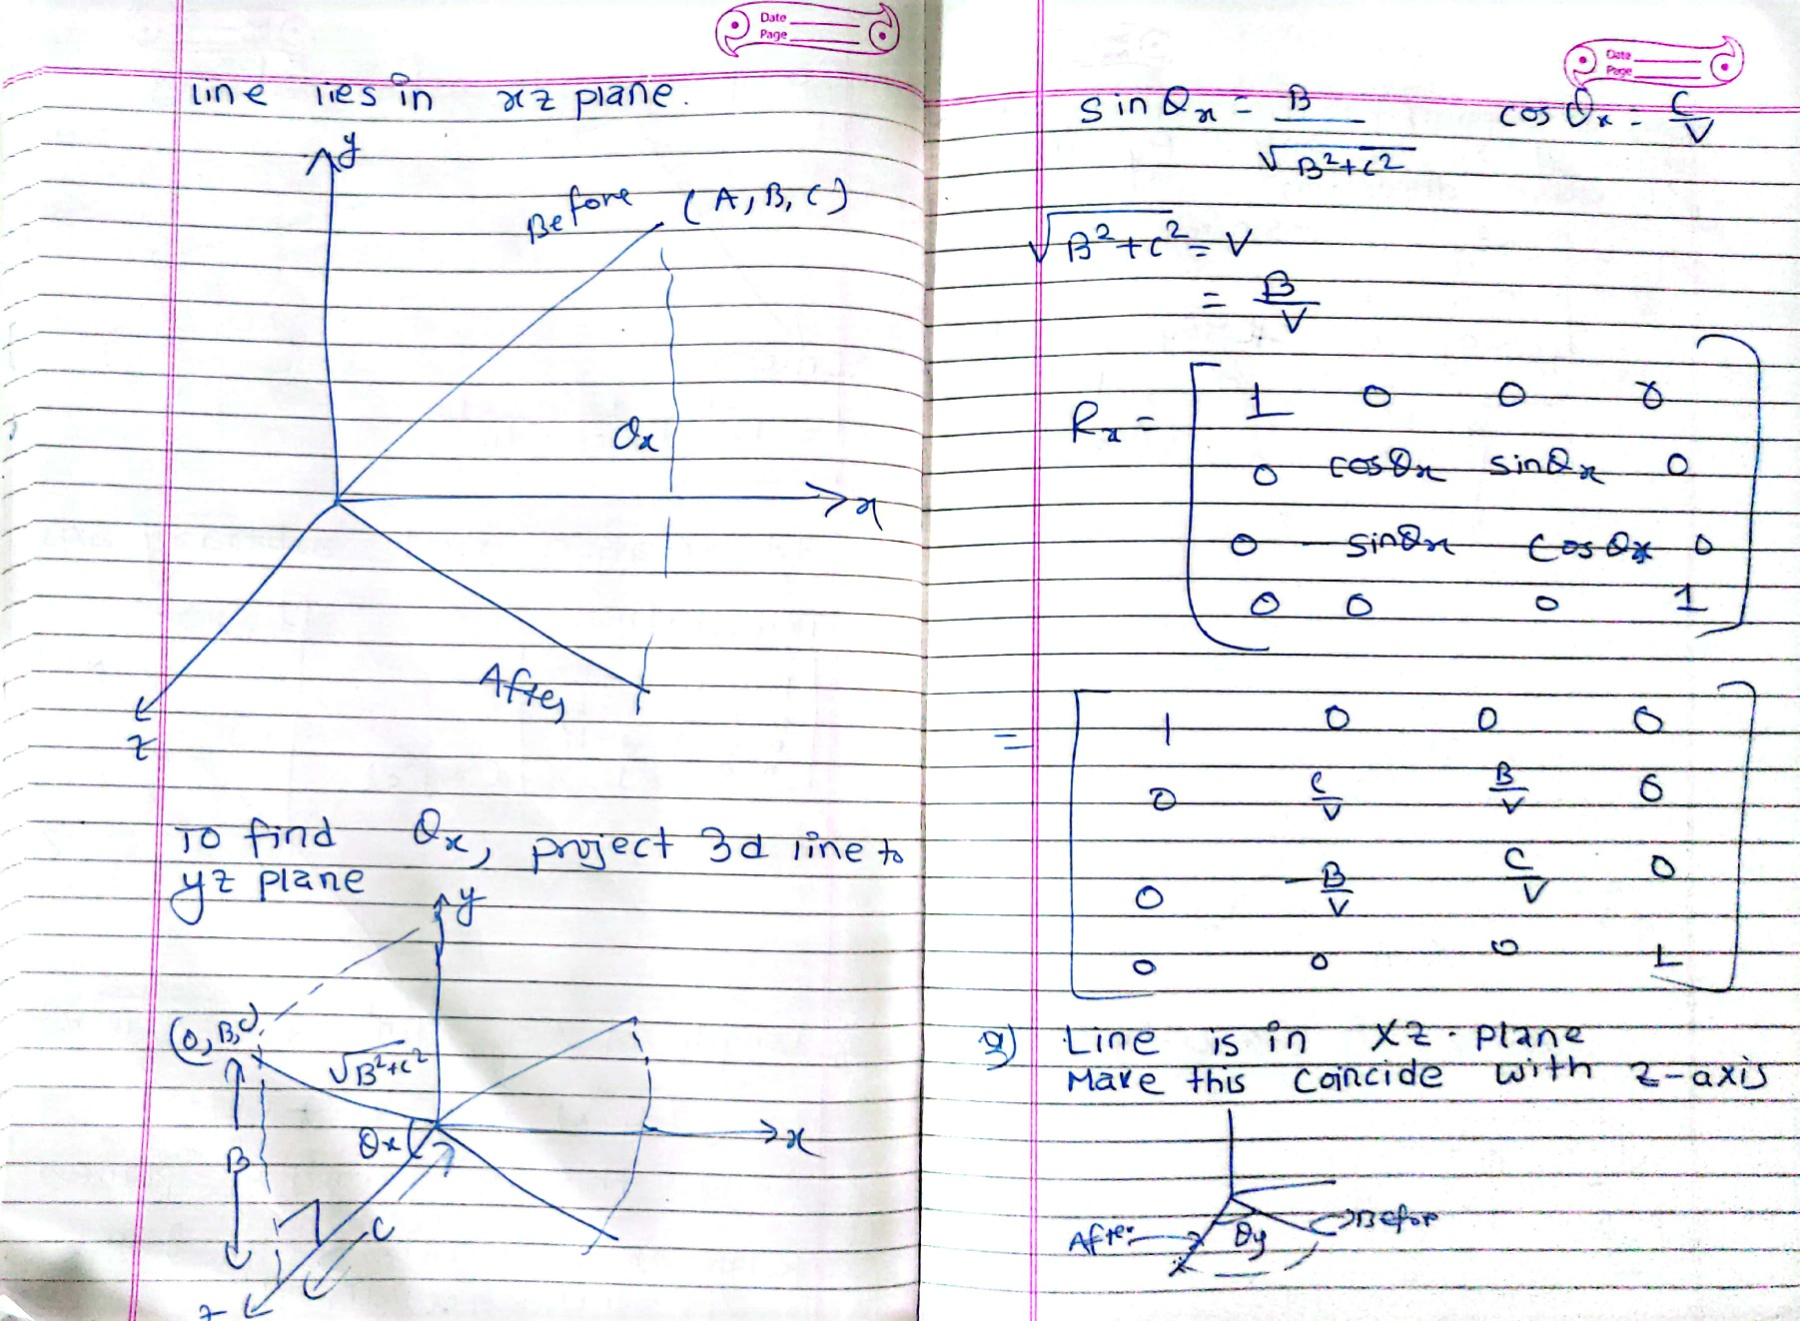 Date
Page
line lies in xz plane.
y
Before (A, B, C)
θx
x
After
z
To find θx, project 3d line to
yz plane
y
(0, B, C)
√B²+C²
θx
x
B
C
z
Date
Page
sin θx = B / √B²+C² cos θx = C/V
√B²+C² = V
= B/V
Rx = [ 1 0 0 0
0 cosθx sinθx 0
0 -sinθx cosθx 0
0 0 0 1 ]
= [ 1 0 0 0
0 C/V B/V 0
0 -B/V C/V 0
0 0 0 1 ]
Line is in XZ-plane
Make this coincide with z-axis
After θy Befor